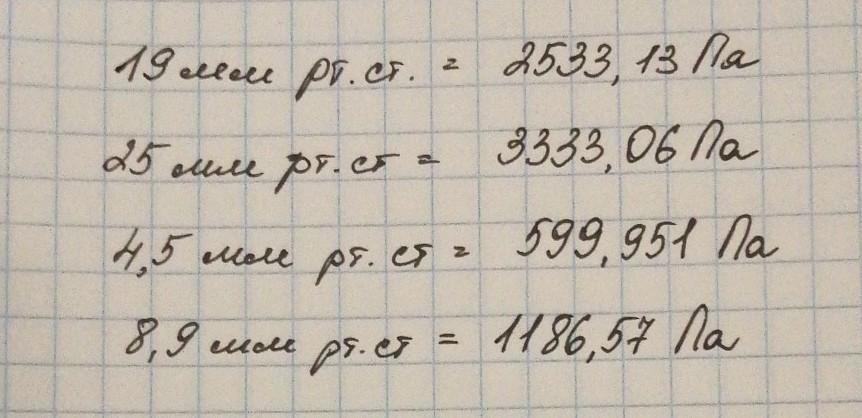 19 мм рт. ст. = 2533,13 Па
25 мм рт. ст = 3333,06 Па
4,5 мм рт. ст = 599,951 Па
8,9 мм рт. ст = 1186,57 Па